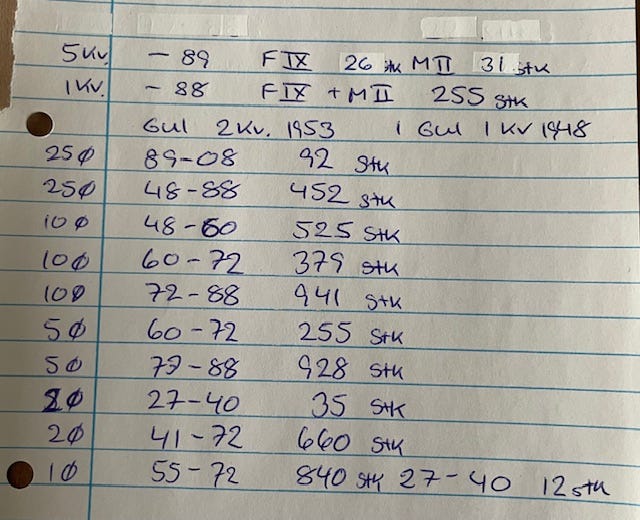 5 Kv. - 89 F IX 26 stk M II 31 stk
1 Kv. - 88 F IX + M II 255 stk
Gul 2 Kv. 1953 1 Gul 1 KV 1948
25 Ø 89-08 92 stk
25 Ø 48-88 452 stk
10 Ø 48-60 525 stk
10 Ø 60-72 379 stk
10 Ø 72-88 941 stk
5 Ø 60-72 255 stk
5 Ø 73-88 928 stk
2 Ø 27-40 35 stk
2 Ø 41-72 660 stk
1 Ø 55-72 840 stk 27-40 12 stk